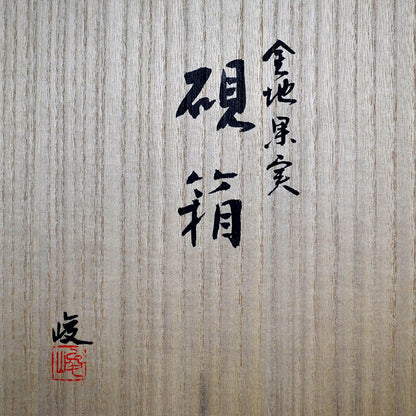 金地果実
硯箱
峻